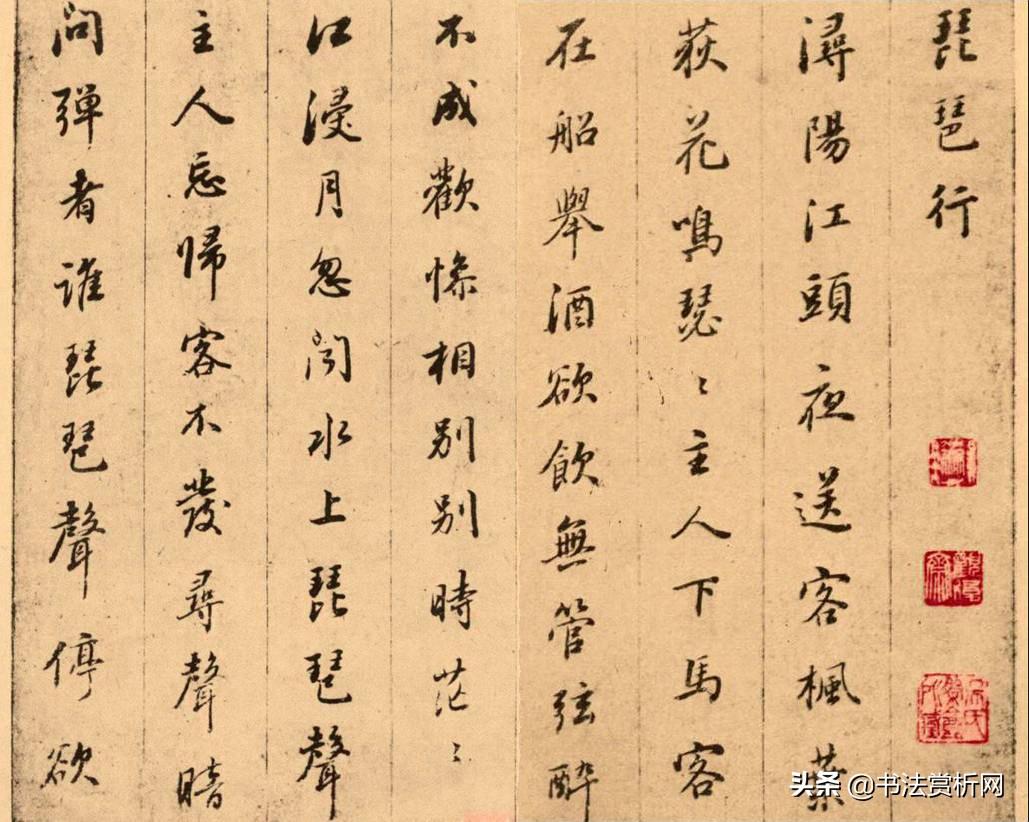 琵琶行
潯陽江頭夜送客楓葉
荻花鳴瑟〻主人下馬客
在船舉酒欲飲無管弦醉
不成歡慘相別別時茫〻
江浸月忽聞水上琵琶聲
主人忘歸客不發尋聲暗
問彈者誰琵琶聲停欲
头条 @书法赏析网